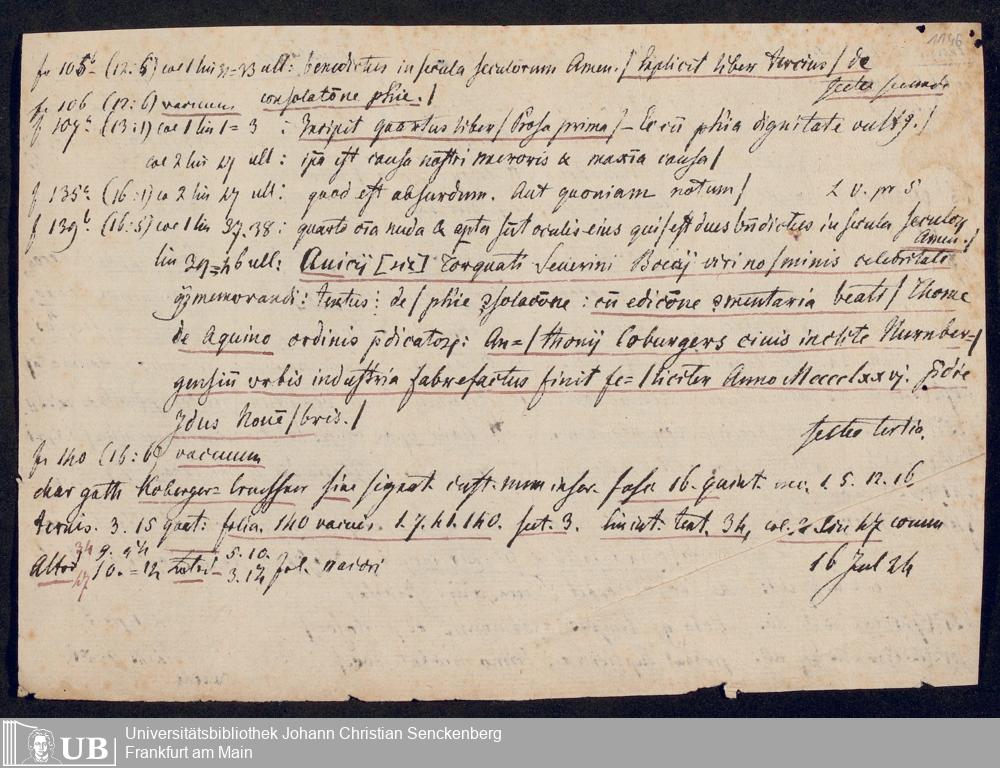 1146
f 105b (12:5) col 1 lin 32=33 ult: benedictus in secula seculorum Amen./ Explicit liber tercius / de
f 106 (12:6) vacuum consolatōne phie./
f 107a (13:1) col 1 lin 1=3 : Incipit quartus liber / Prosa prima /
col 2 lin 47 ult: ipā est causa nostri meroris & maxīa causa /
f 135a (16:1) co 2 lin 47 ult: quod est absurdum. Aut quoniam notum / L v. pr 5
f 139b (16:5) col 1 lin 37.38: quarto oīa nuda & apta sūt oculis eius qui / est dues bn̄dictus in secula seculoꝝ Amen./
lin 39=46 ult: Anicij [sic] Torquati Severini Boecij viri no / minis celebritate
memorandi: textus: de / phie ꝯsolatōne: cū edicōne ꝯmentaria beati / Thome
de Aquino ordinis p̄dicatoꝝ: An= / thonij Coburgers ciuis inclite Nurnber= /
gensiū vrbis industria fabrefactus finit fe= / liciter Anno Mcccclxxvj.
Jdus Nouē / bris./
f 140 (16:6) vacuum
char goth Koberger= Creussner sine signat. cust. num inser. fasc 16. quint. 1. 5. 12. 16
ternis. 3. 15 quat: folia. 140 vacuis. 1. 7. 41. 140. lin int. text. 34, col. 2 Lin 47 comm
5. 10.
10. = 3. 14 fol.
16 Jul 24
Universitätsbibliothek Johann Christian Senckenberg
UB Frankfurt am Main